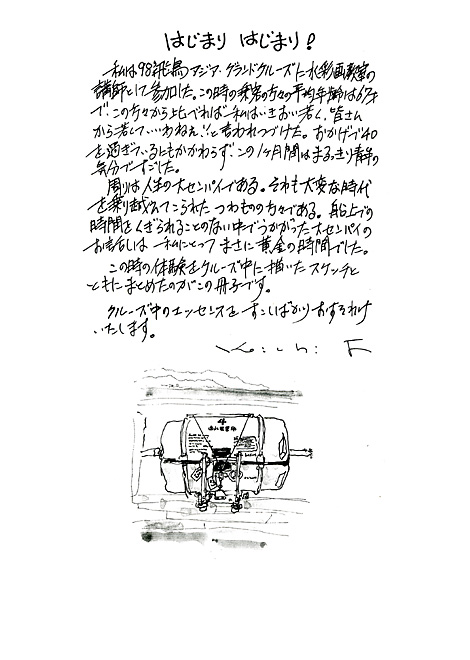 はじまり はじまり!
私は98飛鳥アジア・グランドクルーズに水彩画教室の
講師として参加した。この時の乗客の方々の平均年齢は67才
で、この方々から比べれば私はいきおい若く、皆さん
から若くて‥いわねぇ!と言われつづけた。おかげで40
を過ぎているにもかかわらず、この1ヶ月間はまるっきり青年の
気分ですごした。
周りは人生の大センパイである。それも大変な時代
を乗り越えてこられたつわものの方々である。船上での
時間をくぎられることのない中でうかがった大センパイの
お話しは 私にとって まさに黄金の時間でした。
この時の体験をクルーズ中に描いたスケッチと
ともにまとめたのがこの冊子です。
クルーズ中のエッセンスを すこしばかり おすそわけ
いたします。
4